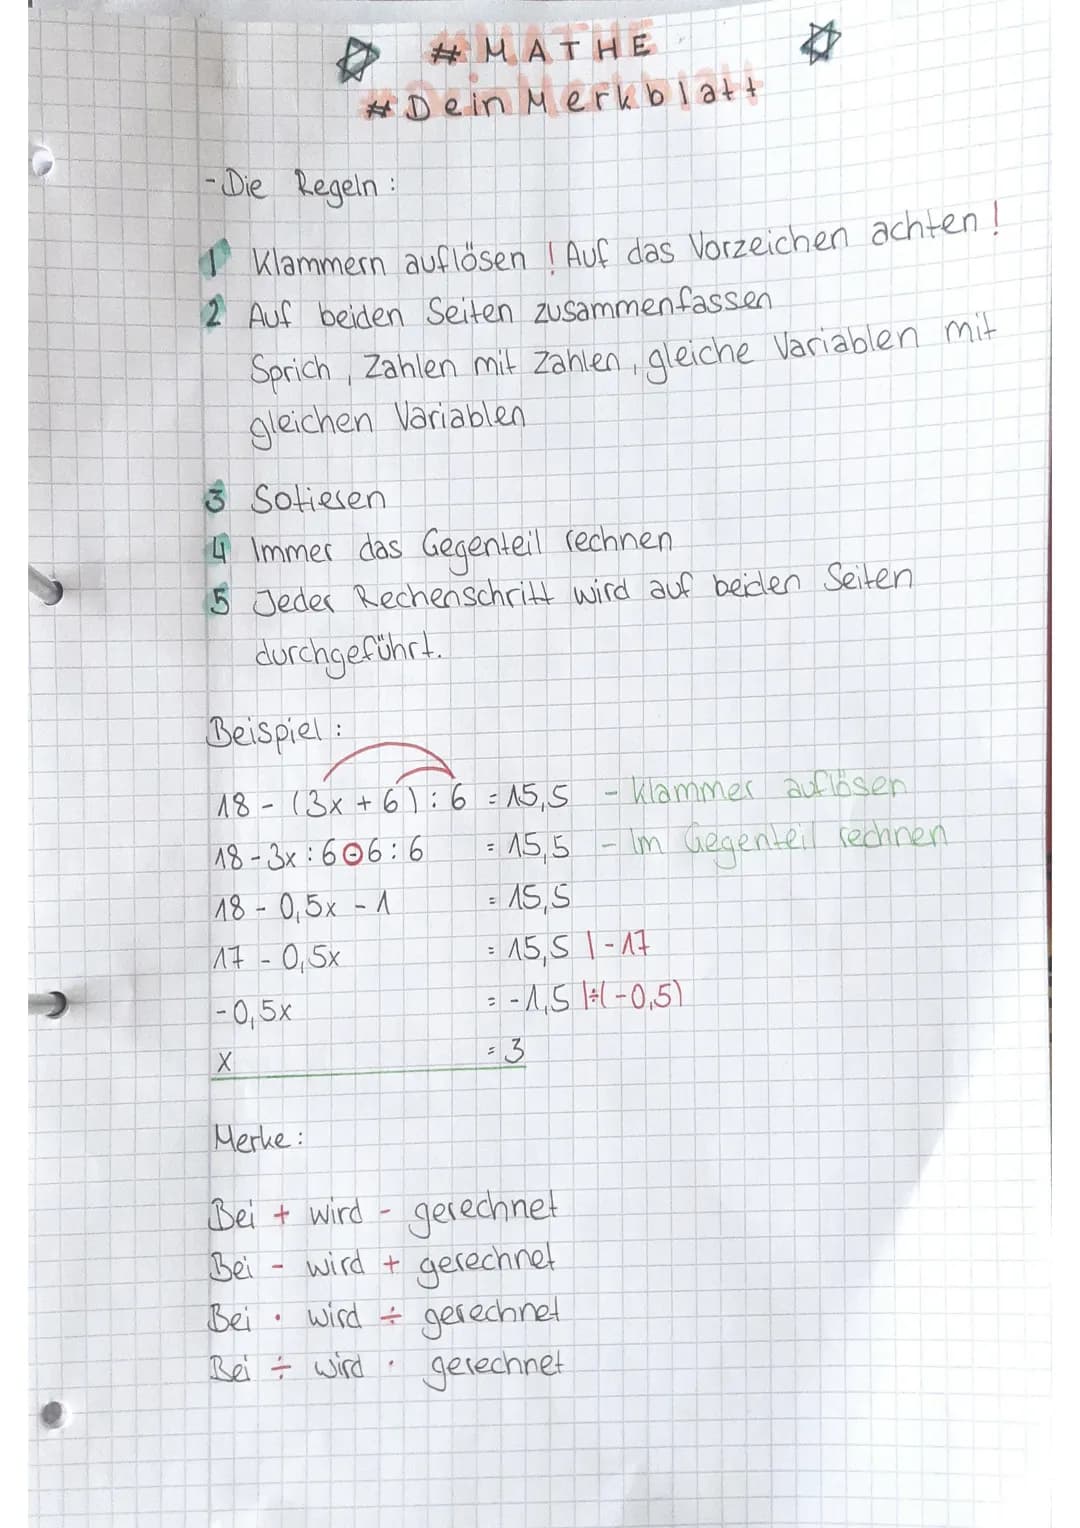 # MATHE
# Dein Merkblatt
- Die Regeln :
1 Klammern auflösen ! Auf das Vorzeichen achten !
2 Auf beiden Seiten zusammenfassen
Sprich , Zahlen mit Zahlen , gleiche Variablen mit
gleichen Variablen
3 Sotieren
4 Immer das Gegenteil rechnen
5 Jeder Rechenschritt wird auf beiden Seiten
durchgeführt.
Beispiel :
18 - (3x + 6) : 6 = 15,5 - Klammer auflösen
18 - 3x : 6 - 6 : 6 = 15,5 - Im Gegenteil rechnen
18 - 0,5x - 1 = 15,5
17 - 0,5x = 15,5 | - 17
- 0,5x = - 1,5 |÷(-0,5)
x = 3
Merke :
Bei + wird - gerechnet
Bei - wird + gerechnet
Bei · wird ÷ gerechnet
Bei ÷ wird · gerechnet